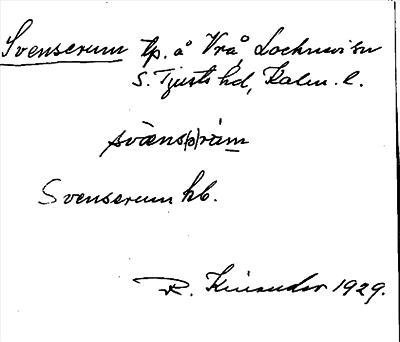 Svenserum tp. å Vrå, Locknevi sn
S. Tjusts hd, Kalm. l.
svæns(ə)räm
Svenserum kb.
R. 1929.